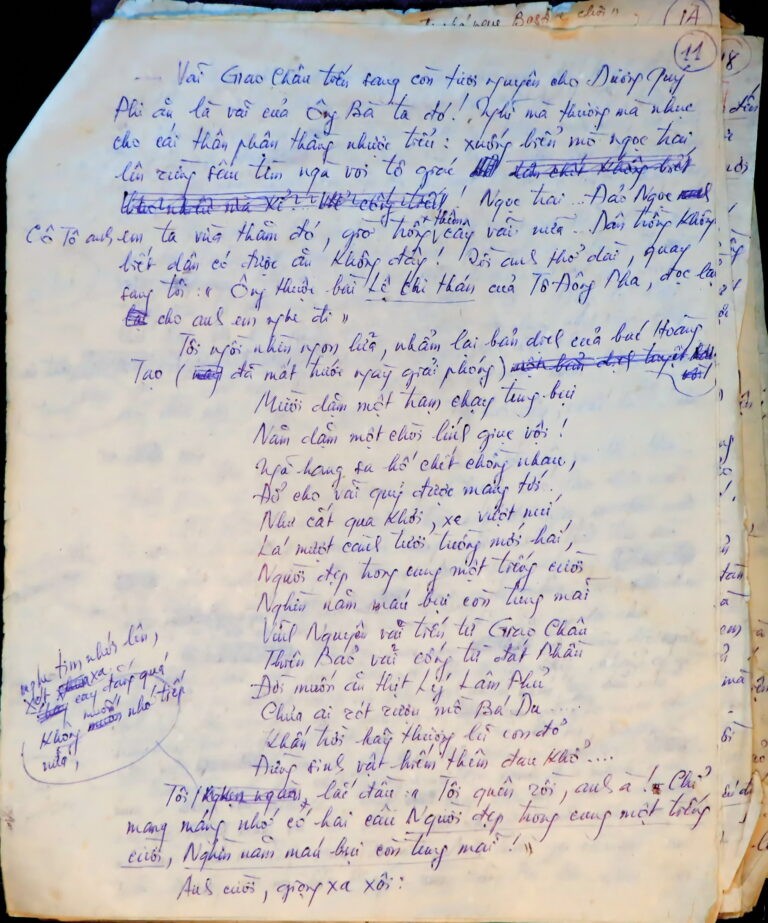 11
— Vải Giao Châu tiến sang còn tươi nguyên cho Dương Quý
Phi ăn là vải của Ông Bà ta đó! Nghĩ mà thương mà nhục
cho cái thân phận thằng nước tiểu: xuống biển mò ngọc trai
lên rừng sâu tìm ngà voi tê giác
! Ngọc trai... Đảo Ngọc
Cô Tô anh em ta vừa thăm đó, giờ trồng thêm cây vải nữa... Dân trồng không
biết dân có được ăn không đây! Rồi anh thở dài, quay
sang tôi: « Ông thuộc bài Lệ Chi thán của Tô Đông Pha, đọc lại
cho anh em nghe đi »
Tôi ngồi nhìn ngọn lửa, nhẩm lại bản dịch của bác Hoàng
Tạo (đã mất trước ngày giải phóng)
Mười dặm một trạm chạy tung bụi
Năm dặm một chòi lính giục vội!
Ngã hang sa hố chết chồng nhau,
Đổ cho vải quý được mang tới.
Như cắt qua khơi, xe vượt núi
Lá mượt cành tươi tưởng mới hái,
Người đẹp trong cung một tiếng cười
Nghìn năm máu bụi còn tung mãi
Vĩnh Nguyên vải tiến từ Giao Châu
Thiên Bảo vải cống từ đất Phần
Đời muốn ăn thịt Lý Lâm Phủ
Chưa ai rót rượu mồ Bá Du....
Khấn trời hãy thương lũ con đỏ
Đừng sinh vật hiếm thêm đau khổ....
nghe tim nhói lên,
xót xa
cay đắng quá
không muốn nhớ tiếp
nữa,
Tôi lắc đầu: « Tôi quên rồi, anh ạ! Chỉ
mang máng nhớ có hai câu Người đẹp trong cung một tiếng
cười, Nghìn năm máu bụi còn tung mãi! »
Anh cười, giọng xa xôi:
1A
18